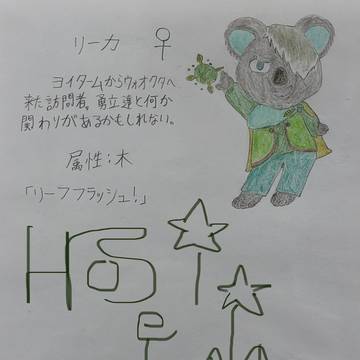 リーカ ♀
ヨイタームからウォオクタへ
来た訪問者。勇立達と何か
関わりがあるかもしれない。
属性:木
「リーフフラッシュ!」